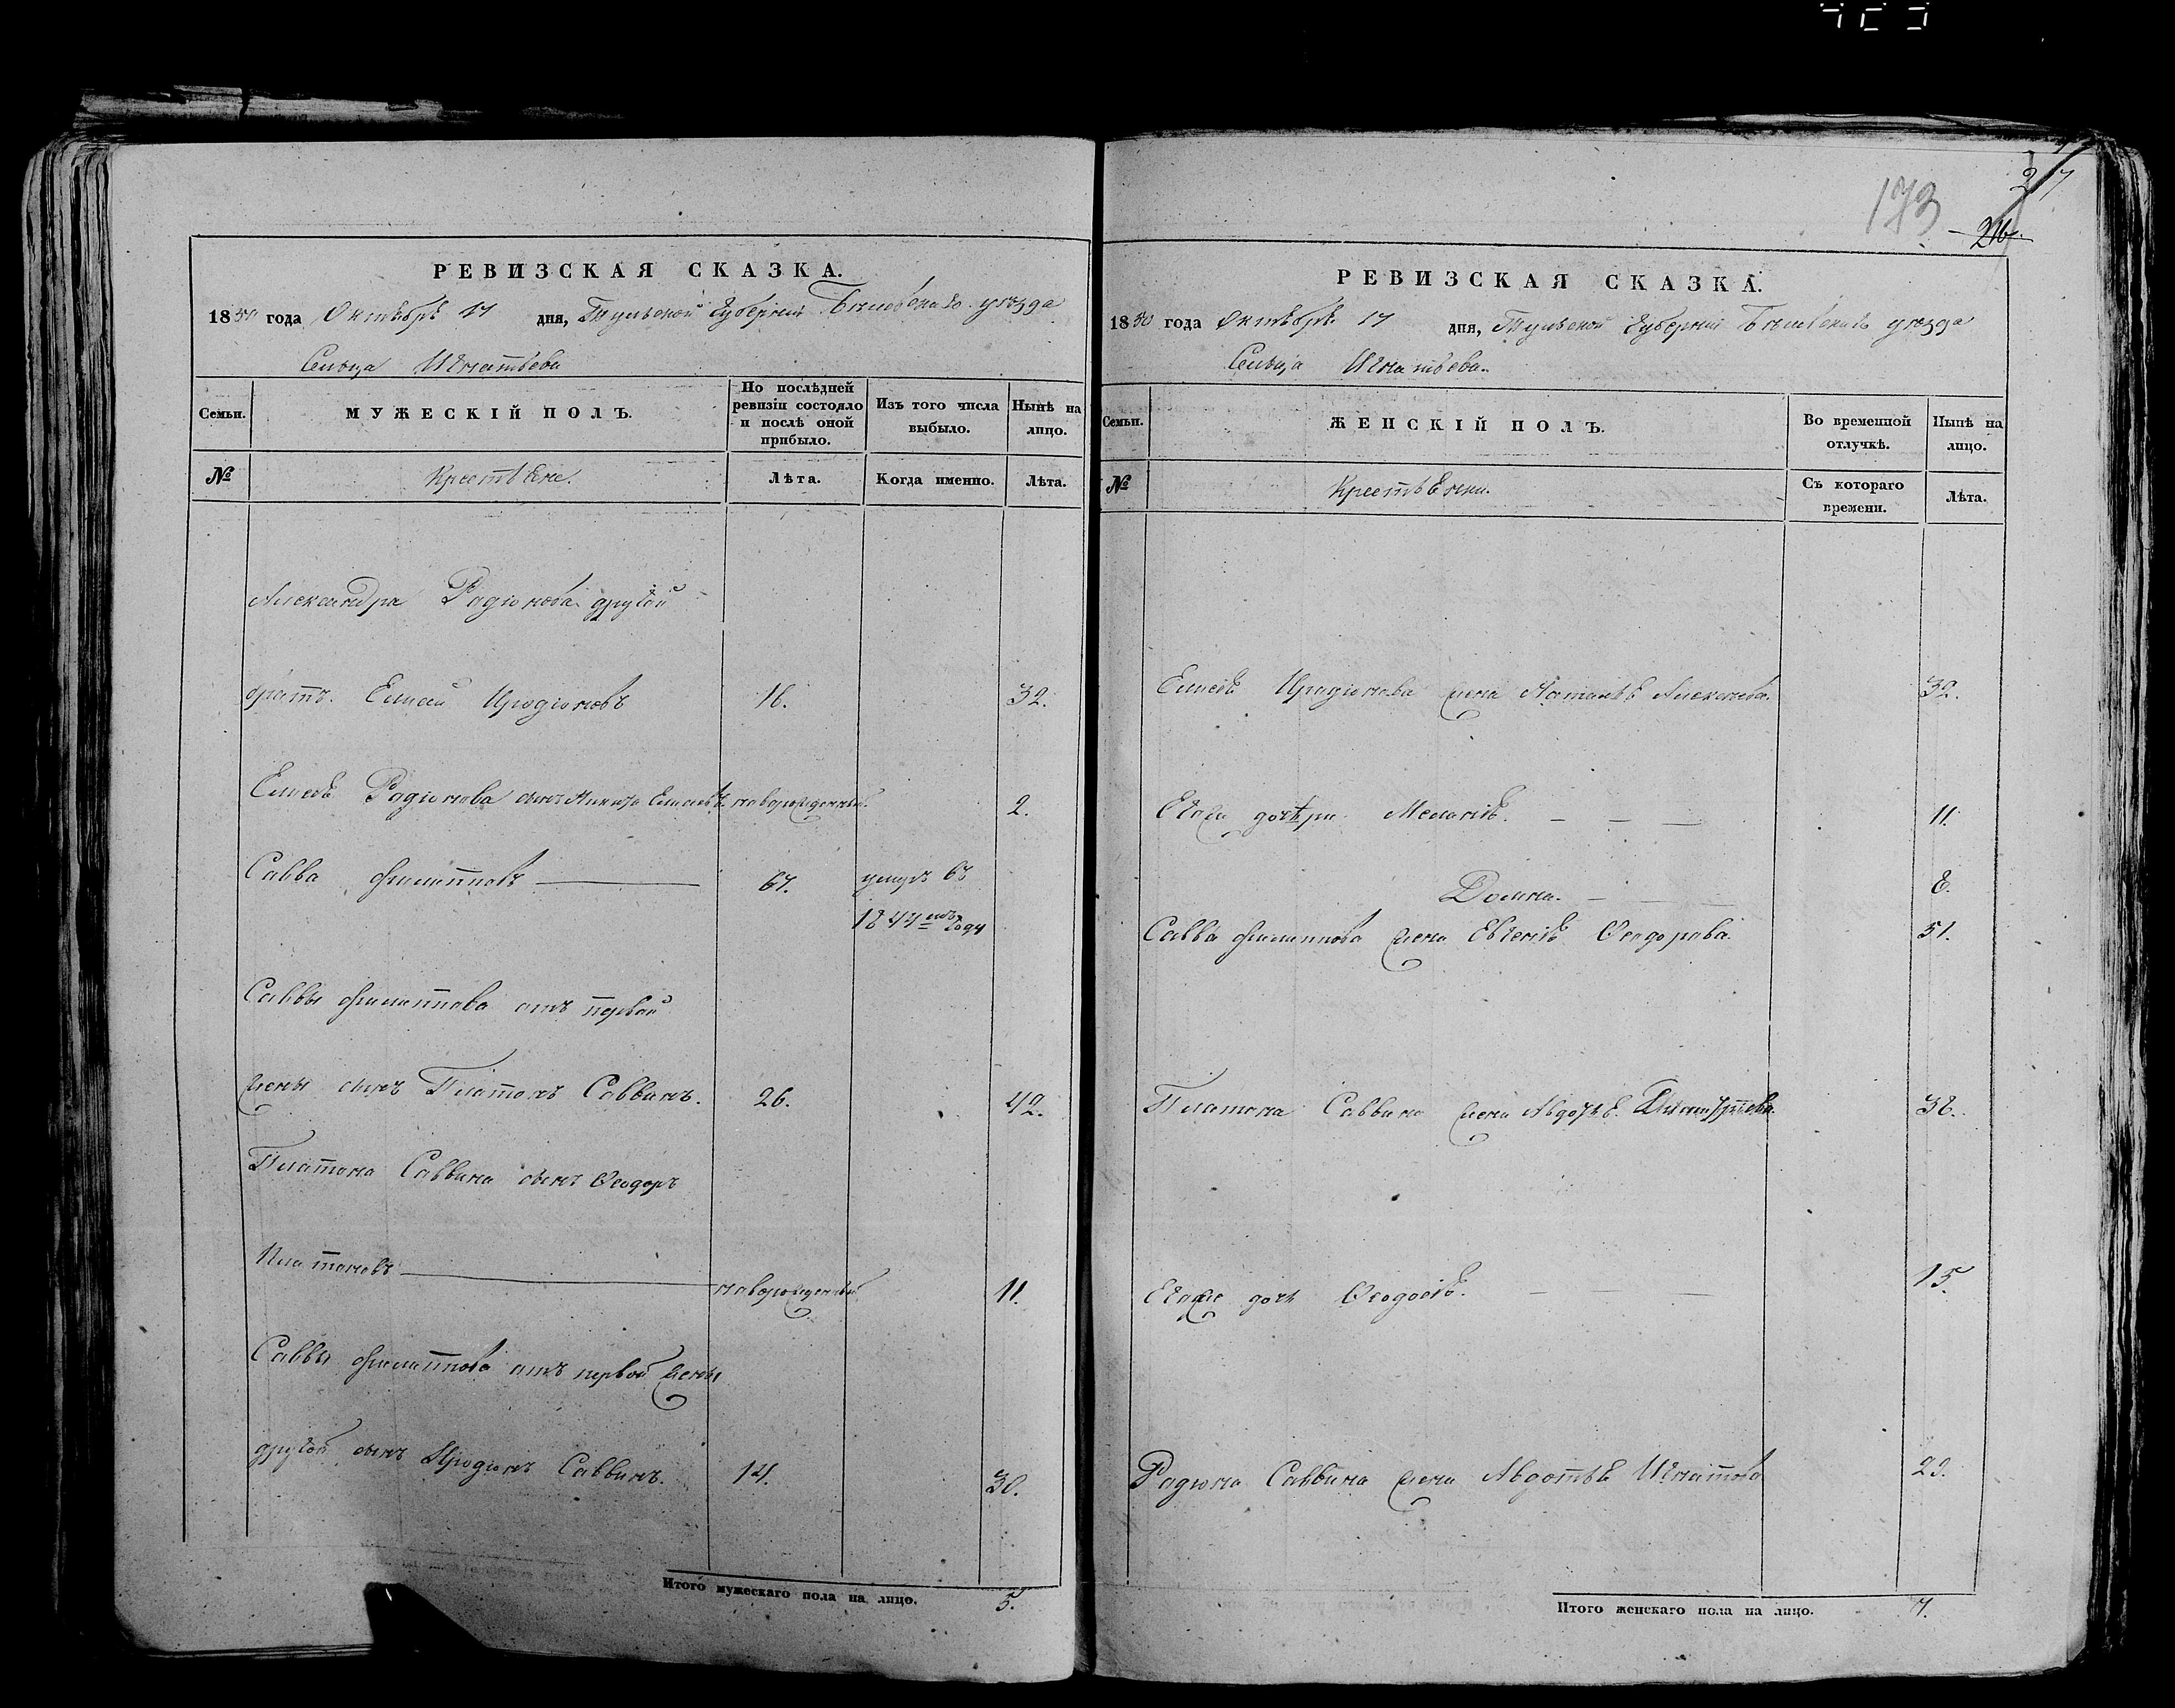 173
217
216.
РЕВИЗСКАЯ СКАЗКА.
1850 года Октября 17 дня, Тульской Губерніи Бѣлевскаго уѣзда
Сельца Игнатьева
Семьи.
МУЖЕСКІЙ ПОЛЪ.
По послѣдней ревизіи состояло и послѣ оной прибыло.
Изъ того числа выбыло.
Нынѣ на лицо.
№
Крестьяне.
Лѣта.
Когда именно.
Лѣта.
Александра Радіонова другой
братъ. Елисей Иродіоновъ 16. 32.
Елисея Радіонова сынъ Никита Елисеевъ новорожденный. 2.
Савва Филипповъ 67. умеръ въ
1847мъ году
Саввы Филиппова отъ первой
жены сынъ Платонъ Саввинъ. 26. 42.
Платона Саввина сынъ Ѳеодоръ
Платоновъ новорожденный 11.
Саввы Филиппова отъ первой жены
другой сынъ Иродіонъ Саввинъ. 14. 30.
Итого мужескаго пола на лицо. 5.
РЕВИЗСКАЯ СКАЗКА.
1850 года Октября 17 дня, Тульской Губерніи Бѣлевскаго уѣзда
Сельца Игнатьева.
Семьи.
ЖЕНСКІЙ ПОЛЪ.
Во временной отлучкѣ.
Нынѣ на лицо.
№
Крестьянки.
Съ котораго времени.
Лѣта.
Елисея Иродіонова жена Наталья Алексѣева. 32.
Егоже дочери Меланія. — — — 11.
Домна. — 8.
Савва Филиппова жена Евгенія Ѳеодорова. 51.
Платона Саввина жена Авдотья Дмитріева. 38.
Егоже дочь Ѳеодосія. — — — 15.
Радіона Саввина жена Авдотья Игнатова 29.
Итого женскаго пола на лицо. 7.